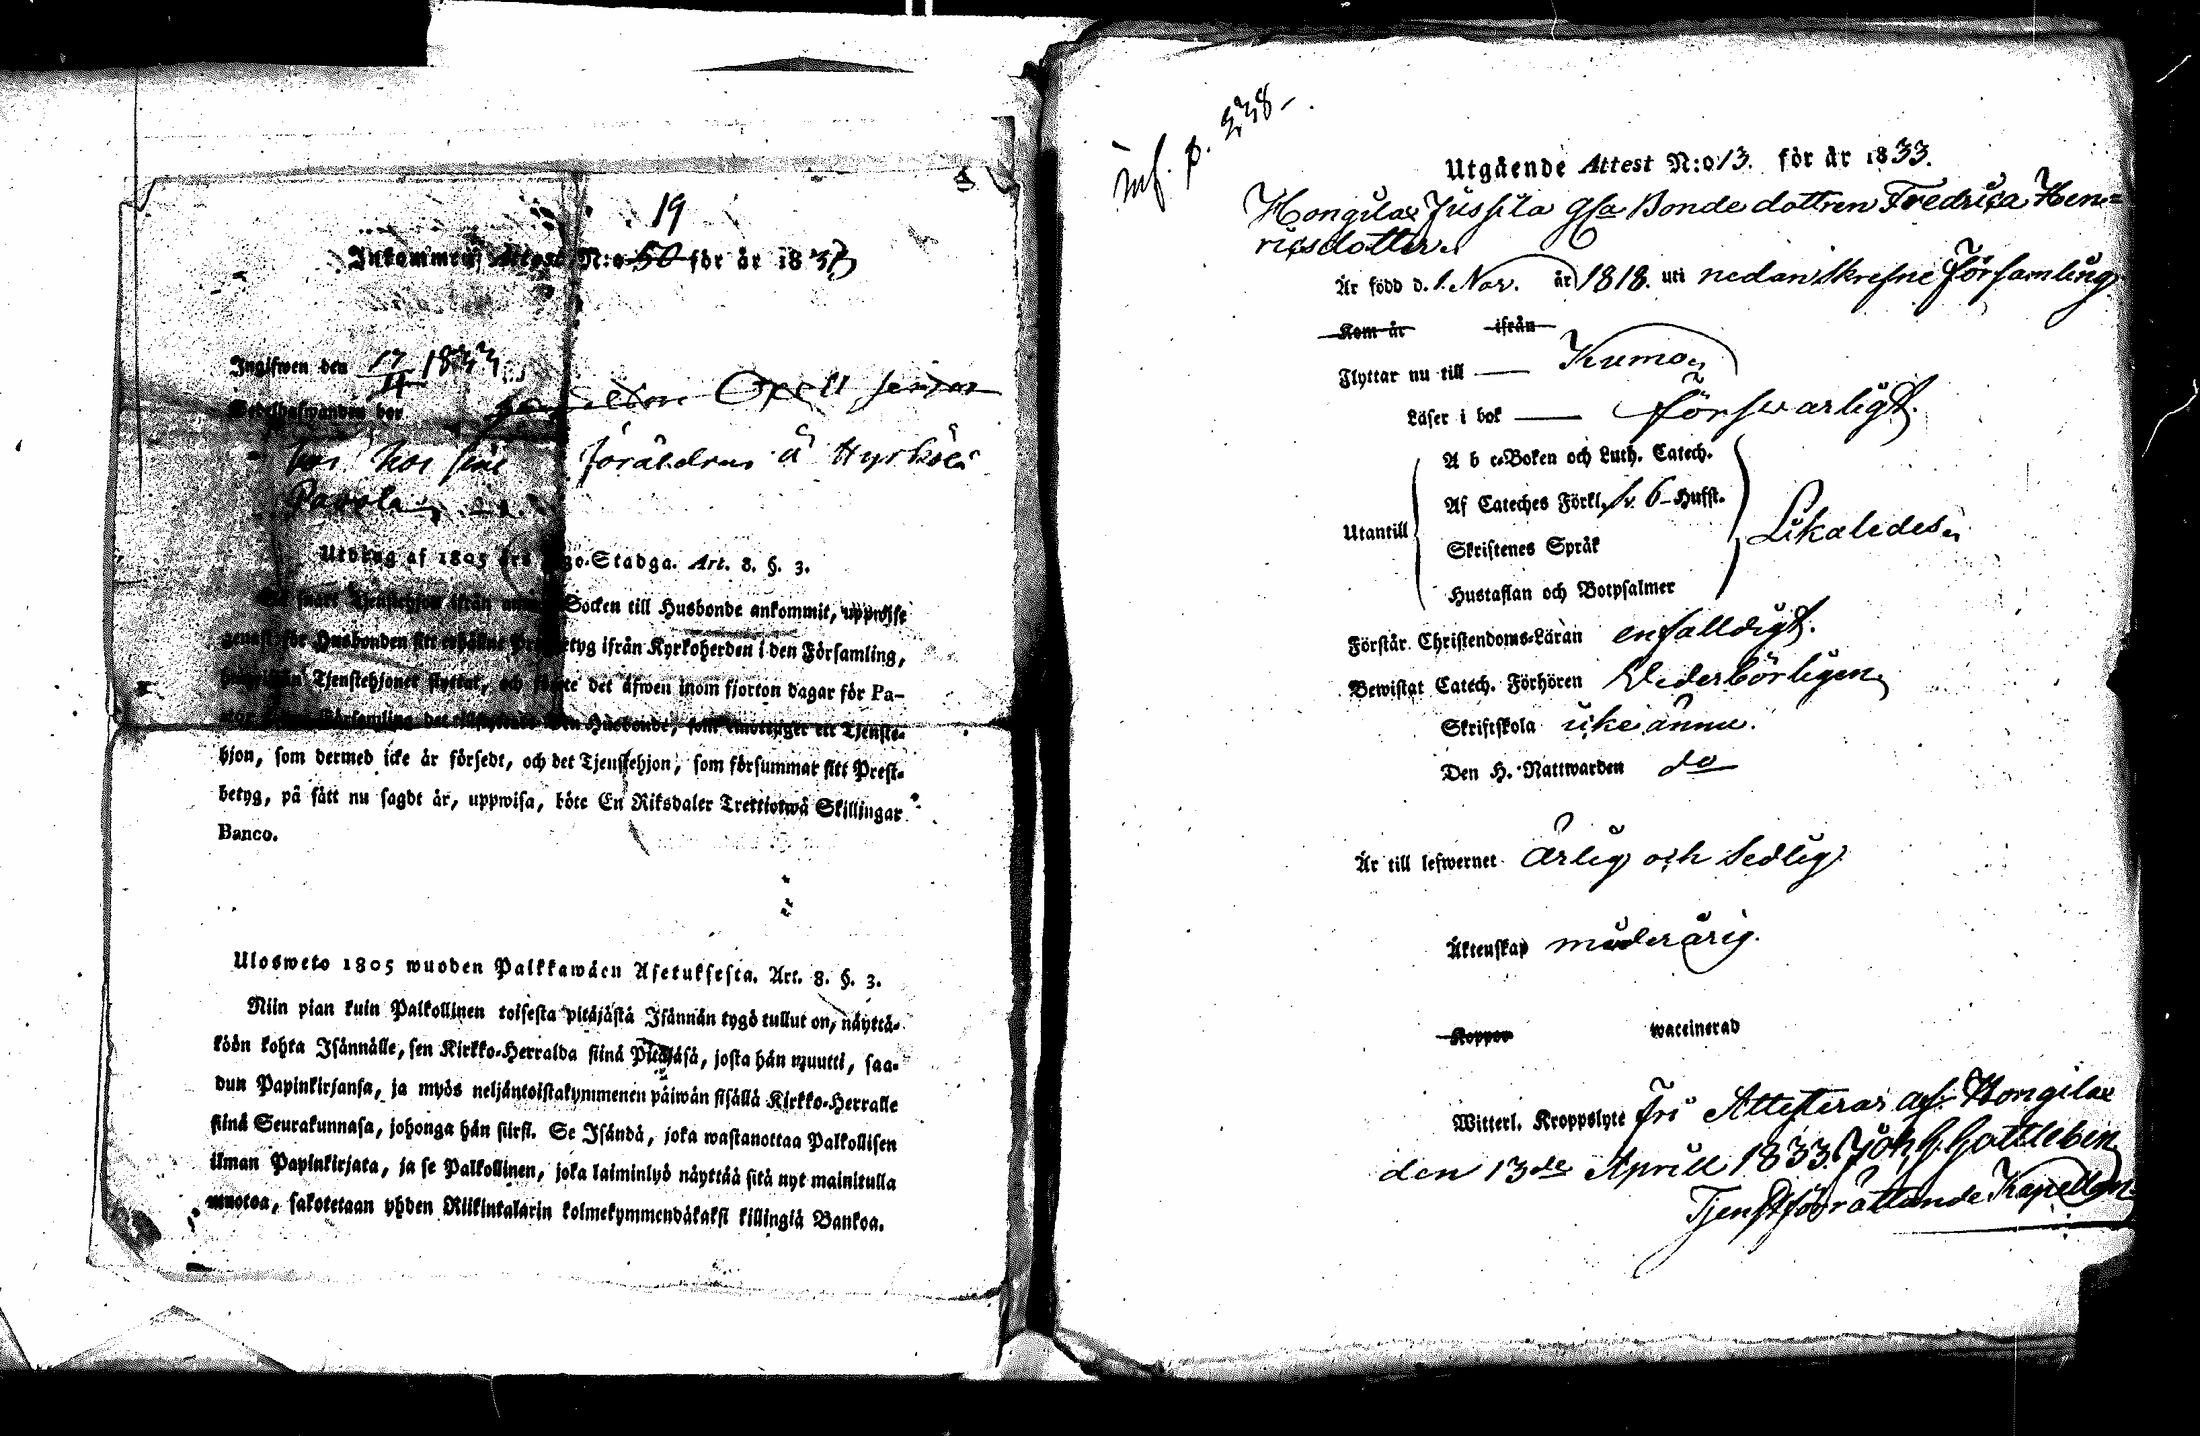 19
Inkommen Attest N:o 50 för år 1833
Ingifwen den 17/11 1833
Sedelhafwanden bor
hos sine föräldrar å Hyrkös
Pavola
Utdrag af 1805 års Lego-Stadga. Art. 8. §. 3.
Så snart Tjenstehjon ifrån annan Socken till Husbonde ankommit, uppwise
genast för Husbonden sitt erhållne Prestbetyg ifrån Kyrkoherden i den Församling,
hwarifrån Tjenstehjonet flyttat, och förete det äfwen inom fjorton dagar för Pa-
stor i den Församling det tillflyttadt. Den Husbonde, som emottager ett Tjenste-
hjon, som dermed icke är försedt, och det Tjenstehjon, som försummar sitt Prest-
betyg, på sätt nu sagdt är, uppwisa, böte En Riksdaler Trettiotwå Skillingar
Banco.
Ulosweto 1805 wuoden Palkkawäen Asetuksesta. Art. 8. §. 3.
Niin pian kuin Palkollinen toisesta pitäjästä Isännän tygö tullut on, näyttä-
köön kohta Isännälle, sen Kirkko-Herralda siinä Pitäjäsä, josta hän muutti, saa-
dun Papinkirjansa, ja myös neljäntoistakymmenen päiwän sisällä Kirkko-Herralle
siinä Seurakunnasa, johonga hän siirsi. Se Isändä, joka wastanottaa Palkollisen
ilman Papinkirjata, ja se Palkollinen, joka laiminlyö näyttää sitä nyt mainitulla
muotoa, sakotetaan yhden Riikintalarin kolmekymmendäkaksi killingiä Bankoa.
Inf. p. 338
Utgående Attest N:o 13. för år 1833.
Hongilax Jussila gsa Bonde dottren Fredrica Hen=
ricsdotter.
Är född d. 1. Nov. år 1818. uti nedanskrefne Församling
Kom år ifrån
Flyttar nu till Kumo
Läser i bok försvarligt.
A b c-Boken och Luth. Catech.
Af Cateches Förkl. 6 Hufst.
Utantill Likaledes
Skriftenes Språk
Hustaflan och Botpsalmer
Förstår Christendoms-Läran enfalldigt.
Bewistat Catech. Förhören Vederbörligen
Skriftskola icke ännu.
Den H. Nattwarden do
Är till lefwernet ärlig och sedlig
Äktenskap minderårig.
Koppor waccinerad
Witterl. Kroppslyte fri Attesterar af Hongilax
den 13de Aprill 1833. Joh. G. Gottleben
Tjenstförrättande Kapellan